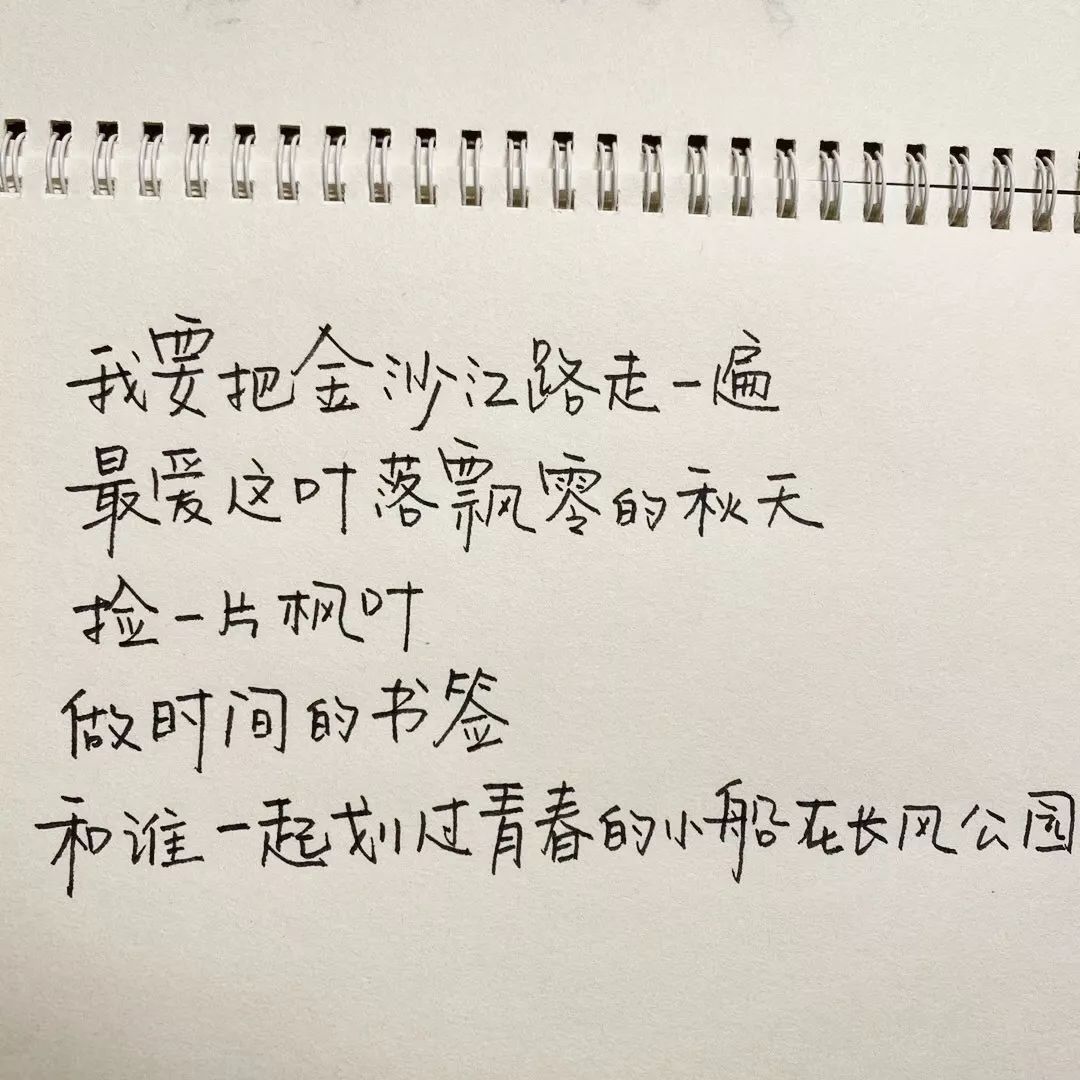 我要把金沙江路走一遍
最爱这叶落飘零的秋天
捡一片枫叶
做时间的书签
和谁一起划过青春的小船在长风公园